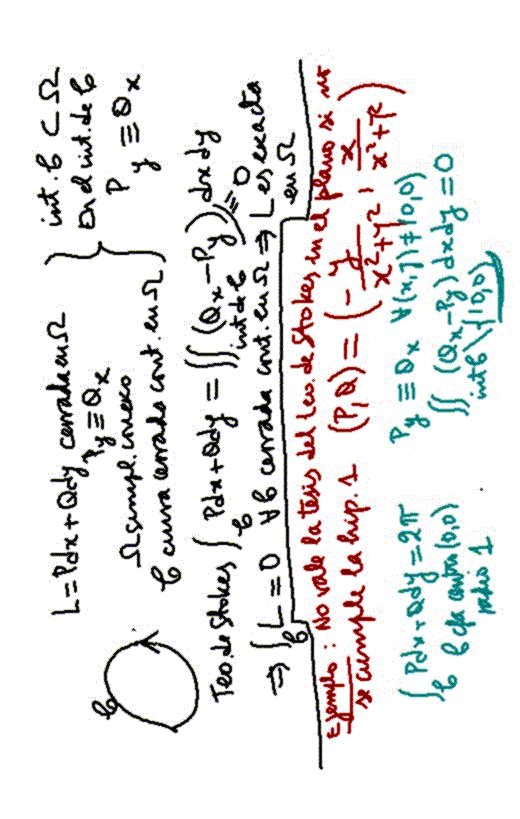 L = Pdx + Qdy cerrada en Ω
P_y ≡ Q_x
Ω simpl. conexo
𝒞 curva cerrada cont. en Ω
} int. 𝒞 ⊂ Ω
En el int. de 𝒞
P_y ≡ Q_x
𝒞
Teo. de Stokes ∫_𝒞 Pdx + Qdy = ∬_{int de 𝒞} (Q_x − P_y) dxdy
≡ 0
⇒ ∫_𝒞 L = 0 ∀𝒞 cerrada cont. en Ω ⇒ L es exacta
en Ω
Ejemplo: No vale la tesis del teo. de Stokes en el plano si no
se cumple la hip. 1 (P, Q) = (− y/(x²+y²), x/(x²+y²))
P_y ≡ Q_x ∀(x,y) ≠ (0,0)
∫_𝒞 Pdx + Qdy = 2π
𝒞 cfa centro (0,0)
radio 1
∬_{int 𝒞 \ {(0,0)}} (Q_x − P_y) dxdy = 0